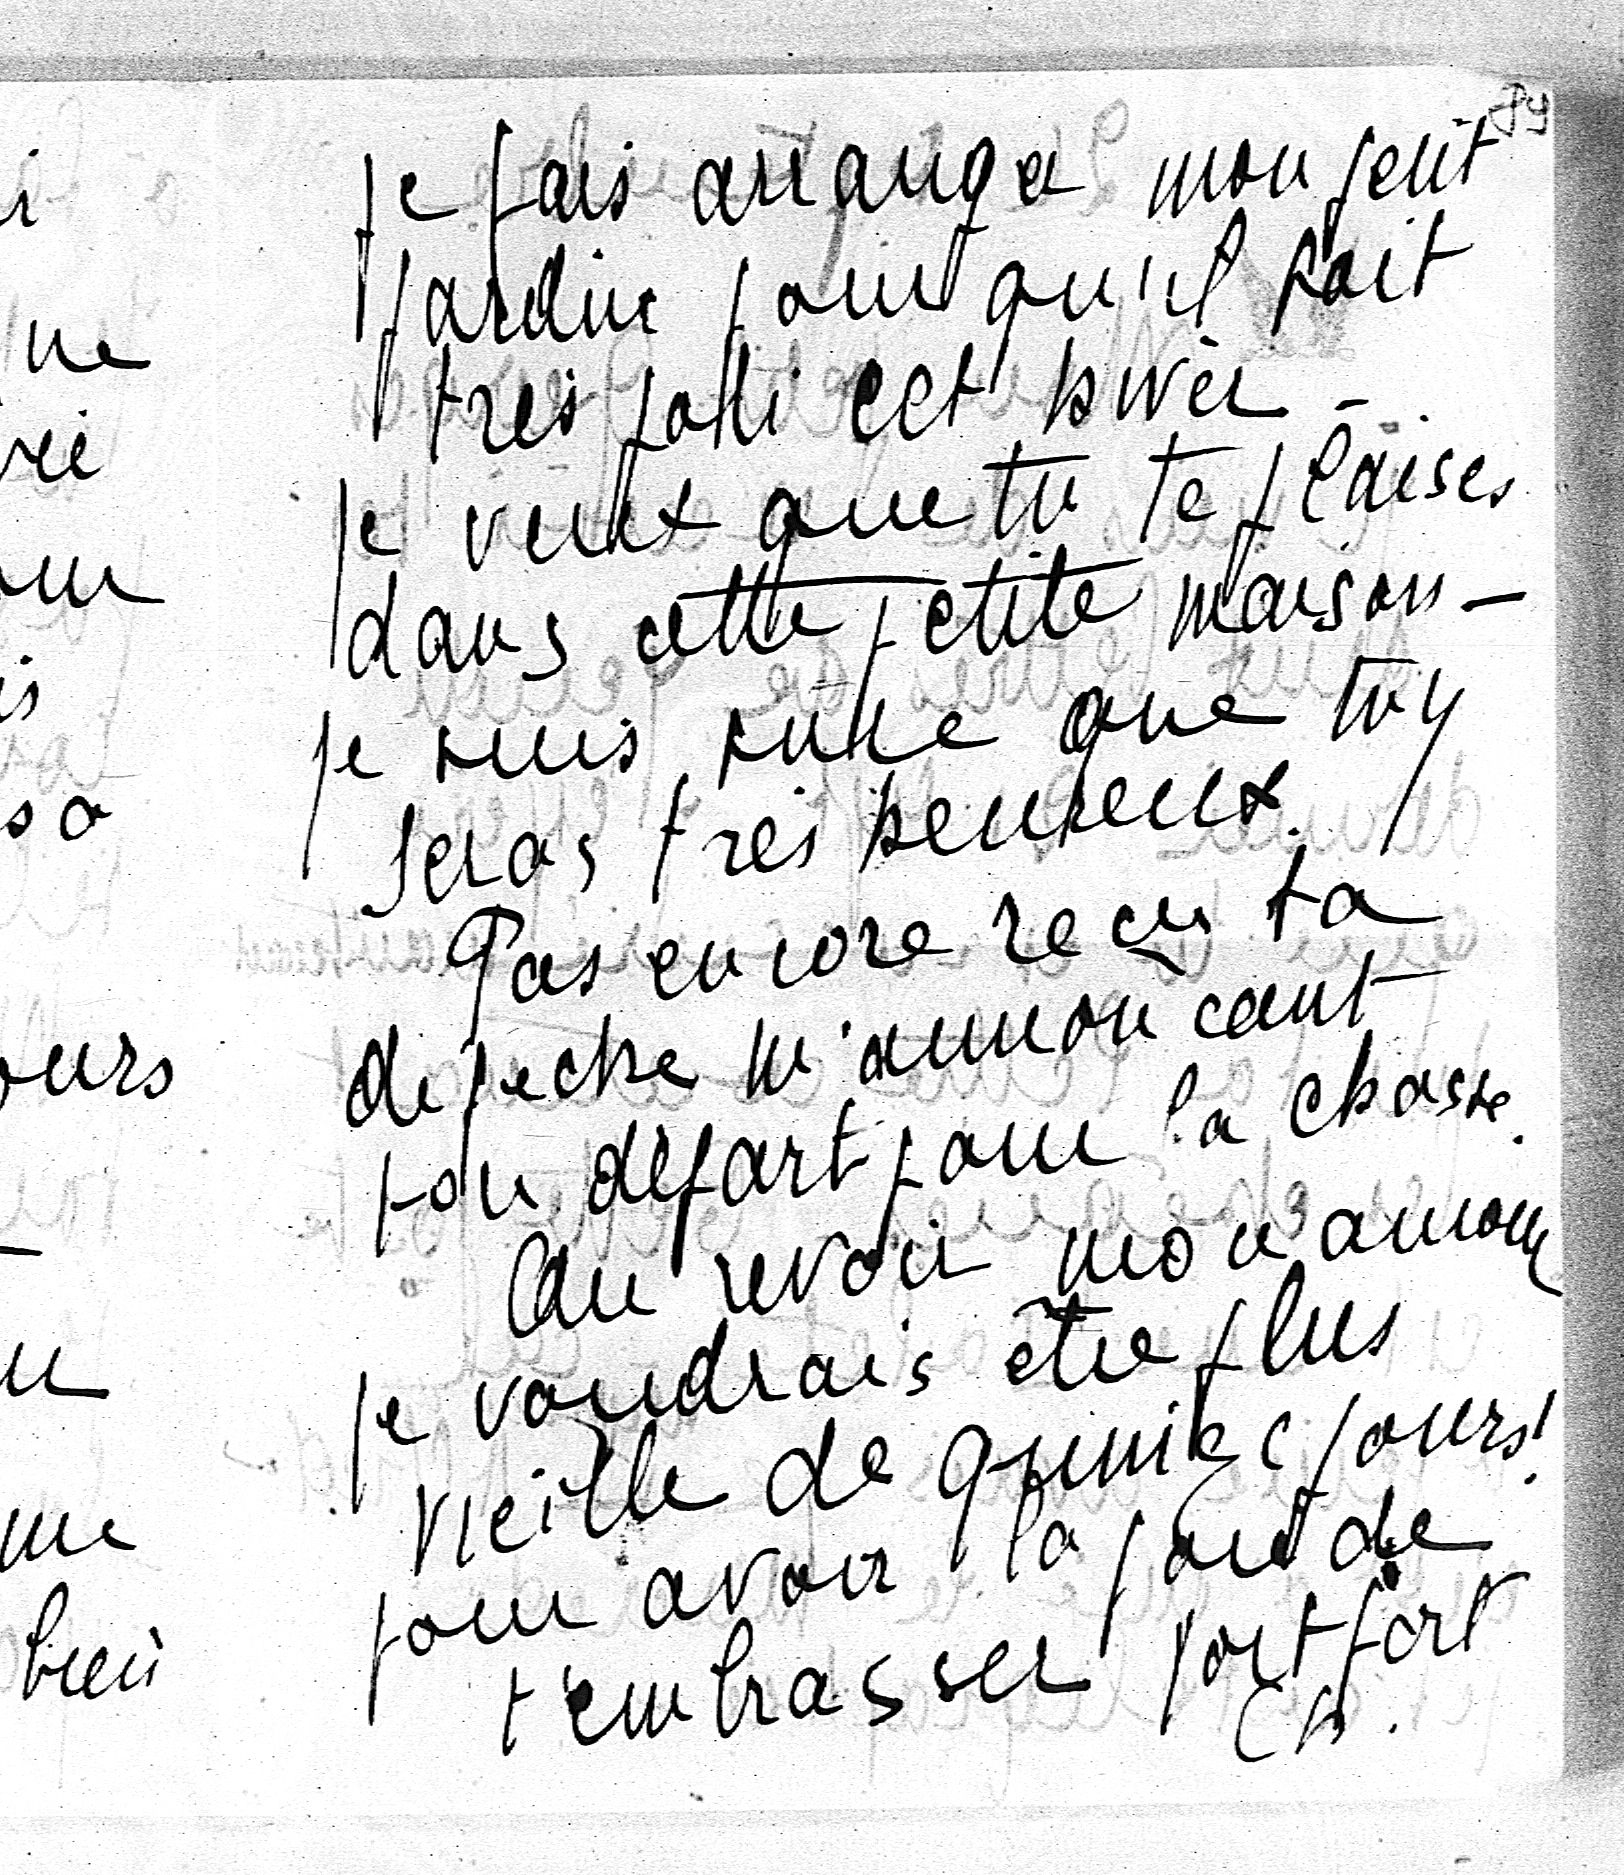 je fais arranger mon petit
jardin pour qu'il soit
très joli cet hiver -
je veux que tu te plaises
dans cette petite maison -
je suis sûre que tu y
seras très heureux.
Pas encore reçu ta
depeche m'annoncant
ton départ pour la chasse.
Au revoir mon amour
je voudrais être plus
vieille de quinze jours!
pour avoir la joie de
t'embrasser fort fort
Ch.
ne
ours
bien